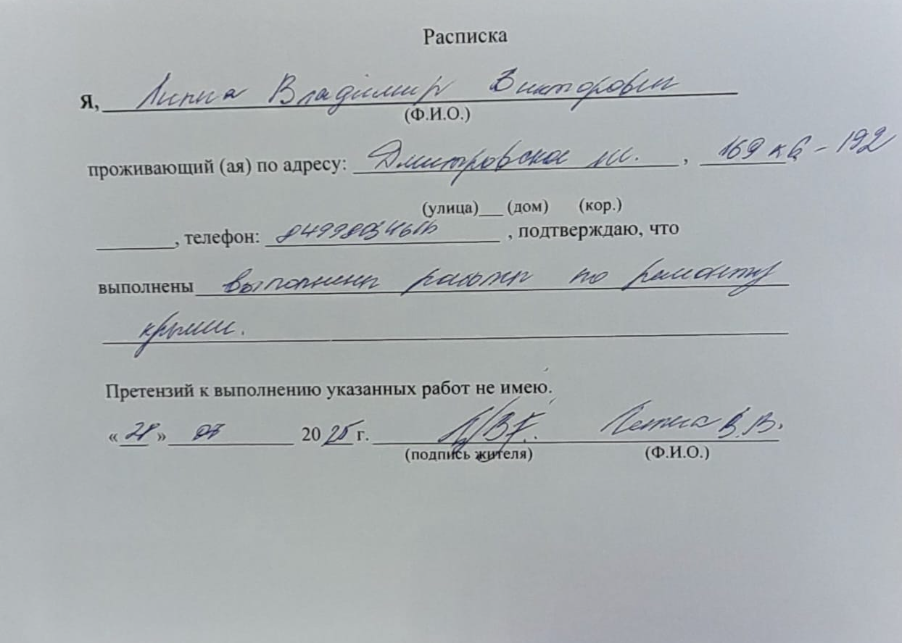 Расписка
Я, Липина Владимир Викторович
(Ф.И.О.)
проживающий (ая) по адресу: Дмитровское ш. , 169 кв - 192
(улица)___ (дом) (кор.)
________, телефон: , подтверждаю, что
выполнены выполнены работы по ремонту
крыши.
Претензий к выполнению указанных работ не имею.
«28» 07 2025 г. В.В.
(подпись жителя) (Ф.И.О.)